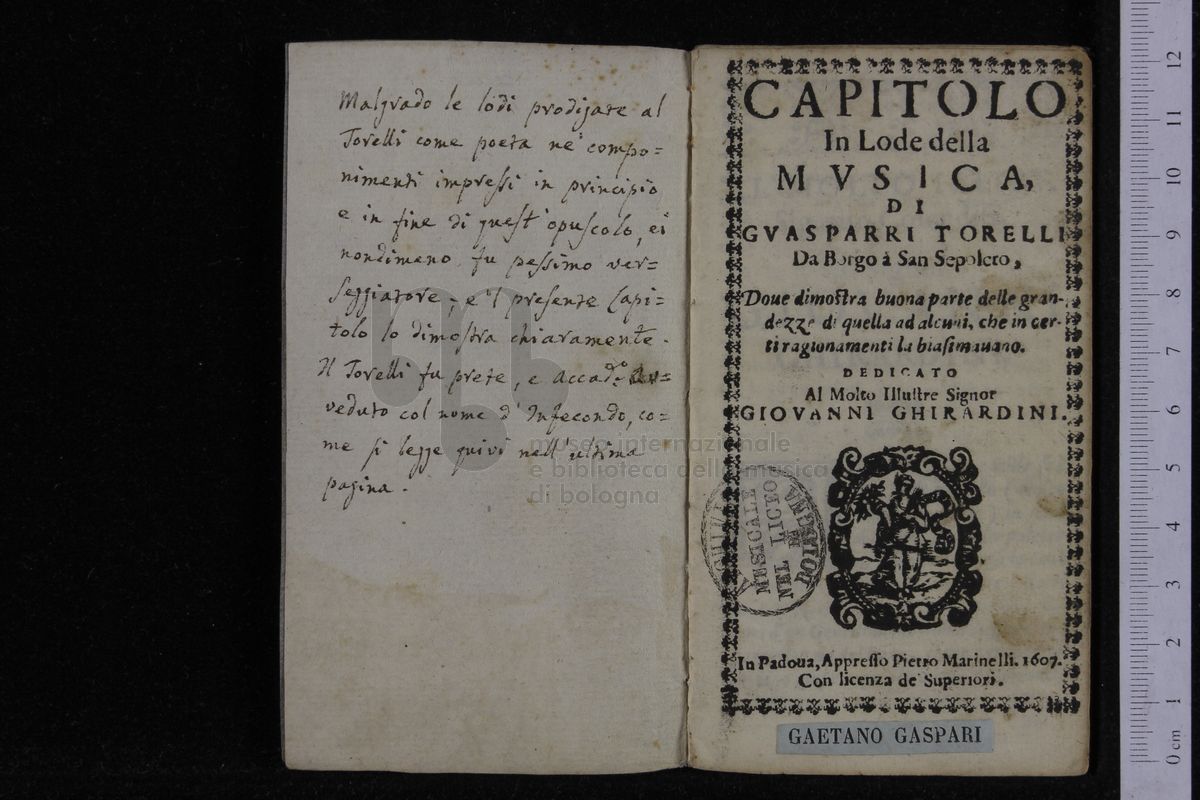 Malgrado le lodi prodigate al
Torelli come poeta ne' compo=
nimenti impressi in principio
e in fine di quest'opuscolo, ei
nondimeno fu pessimo ver=
seggiatore; e 'l presente Capi=
tolo lo dimostra chiaramente.
Il Torelli fu prete, e Accad.º Av=
veduto col nome d'Infecondo, co=
me si legge quivi nell'ultima
pagina.
CAPITOLO
In Lode della
MVSICA,
DI
GVASPARRI TORELLI
Da Borgo à San Sepolcro,
Doue dimostra buona parte delle gran-
dezze di quella ad alcuni, che in cer-
ti ragionamenti la biasimauano.
DEDICATO
Al Molto Illustre Signor
GIOVANNI GHIRARDINI.
MUSICALE
NEL LICEO
DI
BOLOGNA
In Padoua, Appresso Pietro Marinelli. 1607.
Con licenza de' Superiori.
GAETANO GASPARI
museo internazionale
e biblioteca della musica
di bologna
0 cm 1 2 3 4 5 6 7 8 9 10 11 12